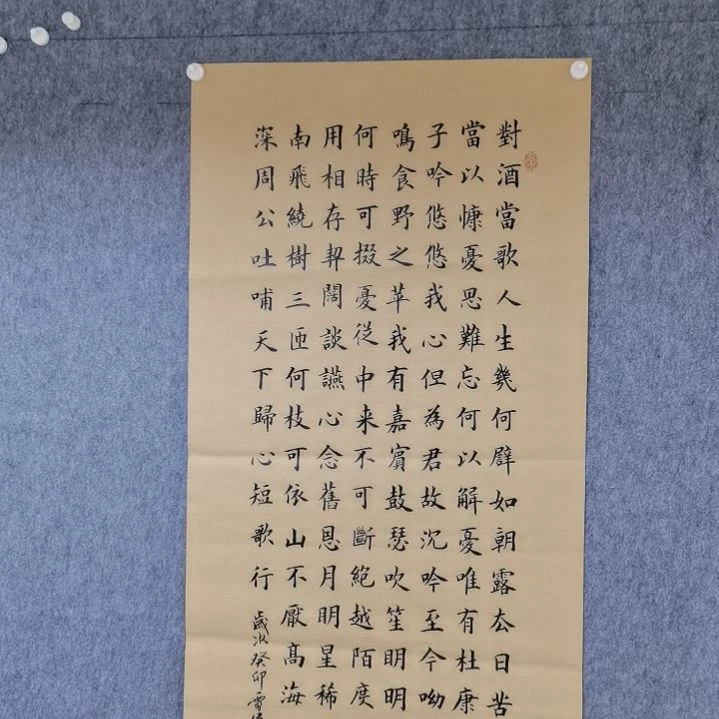 對酒當歌人生幾何譬如朝露去日苦
當以慷憂思難忘何以解憂唯有杜康
子吟悠悠我心但為君故沉吟至今呦
鳴食野之苹我有嘉賓鼓瑟吹笙明明
何時可掇憂從中来不可斷絕越陌度
用相存契闊談讌心念舊恩月明星稀
南飛繞樹三匝何枝可依山不厭高海
深周公吐哺天下歸心短歌行
歲次癸卯雪